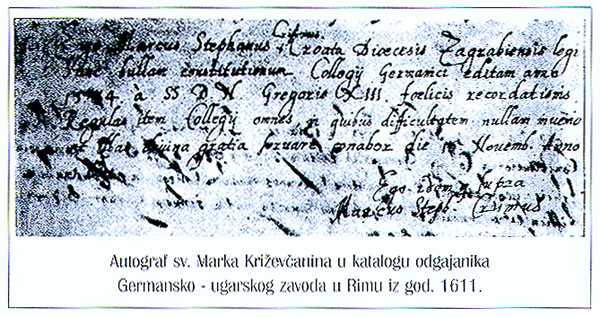 Crisinus
Ego Marcus Stephanus Croata Diœcesis Zagrabiensis legi
hanc bullam constitutionum Collegij Germanici editam anno
1584 à SS D N Gregorio XIII fœlicis recordationis
Regulas item Collegij omnes, in quibus difficultatem nullam invenio
et Has divina gratia servare conabor die Novemb. Anno
Ego idem qui supra
Marcus Steph. Crisinus
Autograf sv. Marka Križevčanina u katalogu odgajanika
Germansko - ugarskog zavoda u Rimu iz god. 1611.